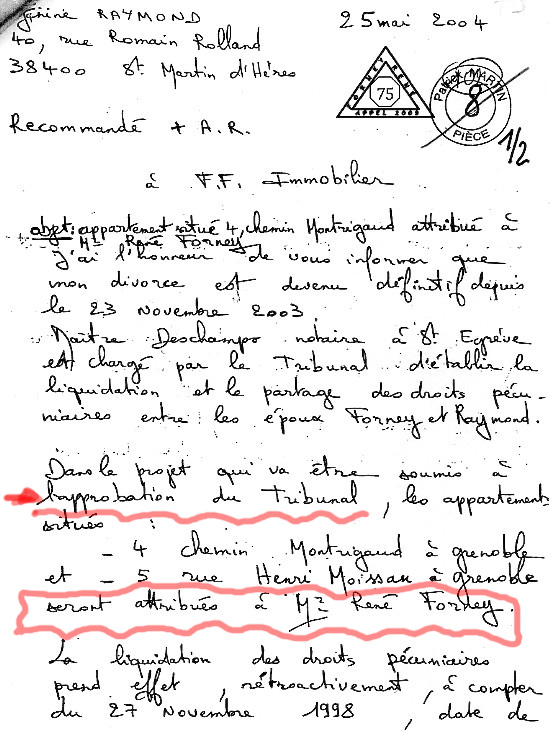 Janine RAYMOND
40, rue Romain Rolland
38400 St Martin d'Hères
25 mai 2004
FORNEY RENE
75
APPEL 2009
Patrick MARTIN
8
PIÈCE
1/2
Recommandé + A.R.
à F.F. Immobilier
objet: appartement situé 4, chemin Montrigaud attribué à
Mr René Forney
J'ai l'honneur de vous informer que
mon divorce est devenu définitif depuis
le 23 novembre 2003.
Maître Deschamps notaire à St Egrève
est chargé par le Tribunal d'établir la
liquidation et le partage des droits pécu-
niaires entre les époux Forney et Raymond.
Dans le projet qui va être soumis à
l'approbation du Tribunal, les appartements
situés :
- 4 chemin Montrigaud à grenoble
et - 5 rue Henri Moissan à grenoble
seront attribués à Mr René Forney.
La liquidation des droits pécuniaires
prend effet, rétroactivement, à compter
du 27 Novembre 1998, date de